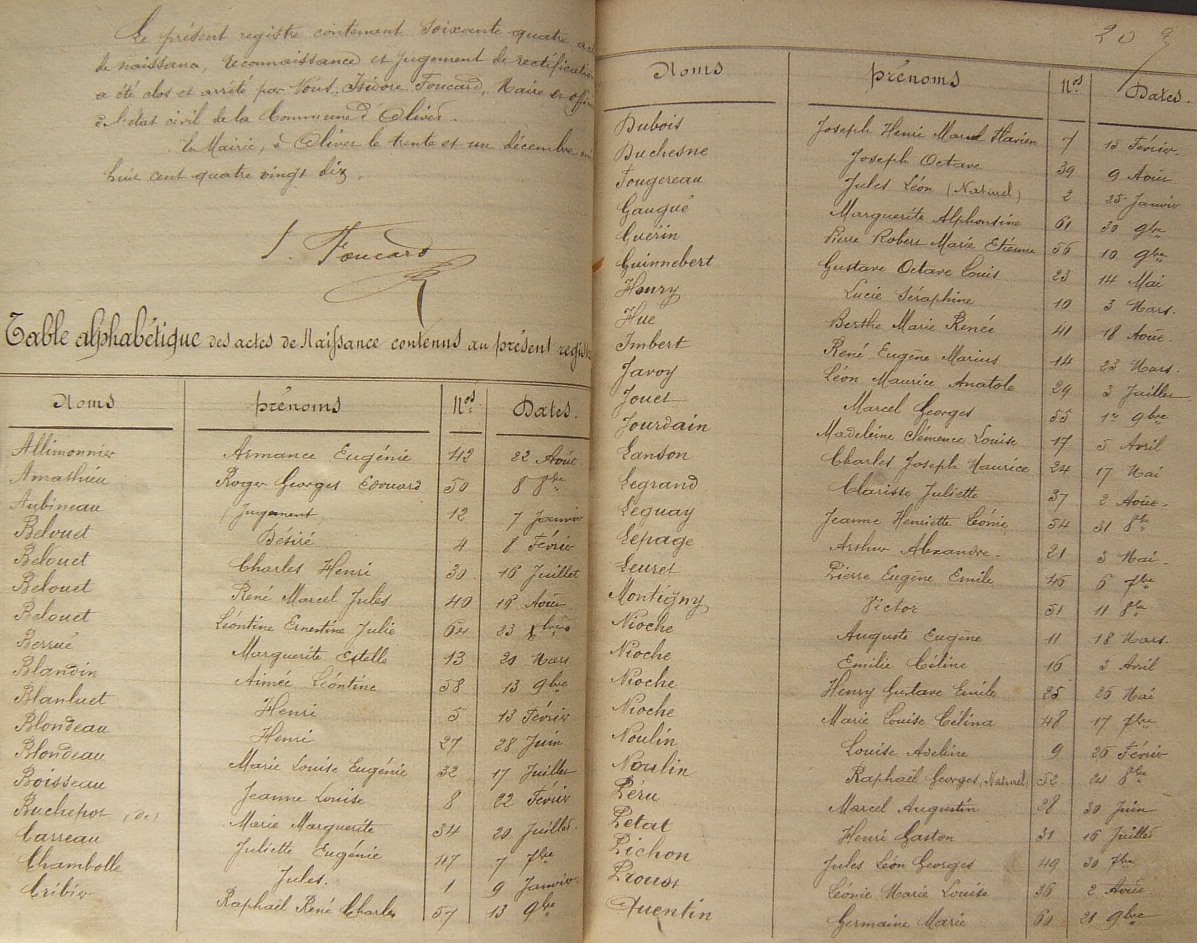 Le présent registre contenant soixante quatre
de naissance, reconnaissance et jugement de rectification
a été clos et arrêté par Nous, Isidore Foucard, Maire
de l'état civil de la Commune d'Olivet.
En Mairie, à Olivet le trente et un décembre
huit cent quatre vingt dix.
I. Foucard
Table alphabétique des actes de Naissance contenus au présent
Noms prénoms Nos Dates.
Allimonnier Armance Eugénie 42 22 Août
Amathieu Roger Georges Edouard 50 8 8bre
Aubineau (Jugement) 12 7 Janvier
Belouet Désiré 4 8 Février
Belouet Charles Henri 30 16 Juillet
Belouet René Marcel Jules 40 16 Août
Belouet Léontine Ernestine Julie 64 23
Berrué Marguerite Estelle 13 20 Mars
Blandin Aimée Léontine 58 13 9bre
Blanluet Henri 5 13 Février
Blondeau Henri 27 28 Juin
Blondeau Marie Louise Eugénie 32 17 Juillet
Boisseau Jeanne Louise 8 22 Février
Buchepot (de) Marie Marguerite 34 20 Juillet
Carreau Juliette Eugénie 47 7 7bre
Chambolle Jules. 1 9 Janvier
Cribier Raphaël René Charles 57 13 9bre
Noms prénoms Nos Dates.
Dubois Joseph Henri Marcel Flavien 7 15 Février
Duchesne Joseph Octave 39 9 Août
Fougereau Jules Léon (Naturel) 2 25 Janvier
Gaugué Marguerite Alphonsine 61 30 9bre
Guérin Pierre Robert Marie Etienne 56 10 9bre
Guinnebert Gustave Octave Louis 23 14 Mai
Henry Lucie Séraphine 10 3 Mars.
Hue Berthe Marie Renée 41 18 Août
Imbert René Eugène Marius 14 23 Mars.
Javoy Léon Maurice Anatole 29 3 Juillet
Jouet Marcel Georges 55 1er 9bre
Jourdain Madeleine Clémence Louise 17 5 Avril
Lanson Charles Joseph Maurice 24 17 Mai
Legrand Clarisse Juliette 37 2 Août
Leguay Jeanne Henriette Léonie 54 31 8bre
Lepage Arthur Alexandre 21 3 Mai
Leuret Pierre Eugène Emile 46 6 7bre
Montigny Victor 51 11 8bre
Nioche Auguste Eugène 11 18 Mars.
Nioche Emilie Céline 16 3 Avril
Nioche Henry Gustave Emile 25 25 Mai
Nioche Marie Louise Célina 48 17 7bre
Noulin Louise Adeline 9 26 Février
Noulin Raphaël Georges (Naturel) 52 24 8bre
Péru Marcel Augustin 28 30 Juin
Petat Henri Gaston 31 16 Juillet
Pichon Jules Léon Georges 49 30 7bre
Proust Léonie Marie Louise 36 2 Août
Quentin Germaine Marie 60 21 9bre